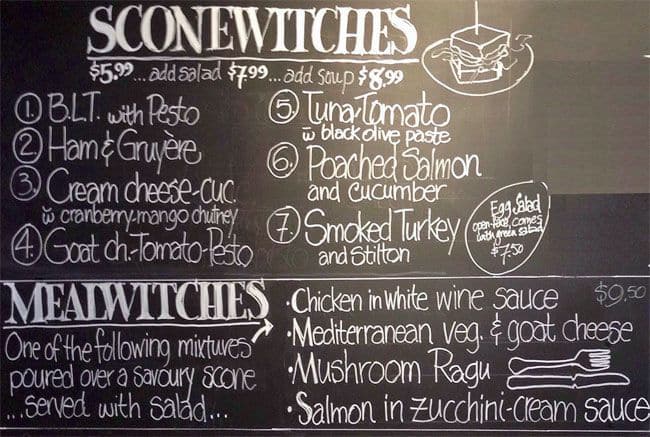 SCONEWITCHES
$5.99...add salad $7.99...add soup $8.99
1. B.L.T. with Pesto
2 Ham & Gruyère
3. Cream cheese-cuc.
w̄ cranberry-mango chutney
4. Goat ch.-Tomato-Pesto
5. Tuna-Tomato
w̄ black olive paste
6. Poached Salmon
and cucumber
7. Smoked Turkey
and Stilton
Egg Salad
open-face, comes
with green salad
$7.50
MEALWITCHES
One of the following mixtures
poured over a savoury scone
...served with salad...
·Chicken in white wine sauce $9.50
·Mediterranean veg. & goat cheese
·Mushroom Ragu
·Salmon in zucchini-cream sauce